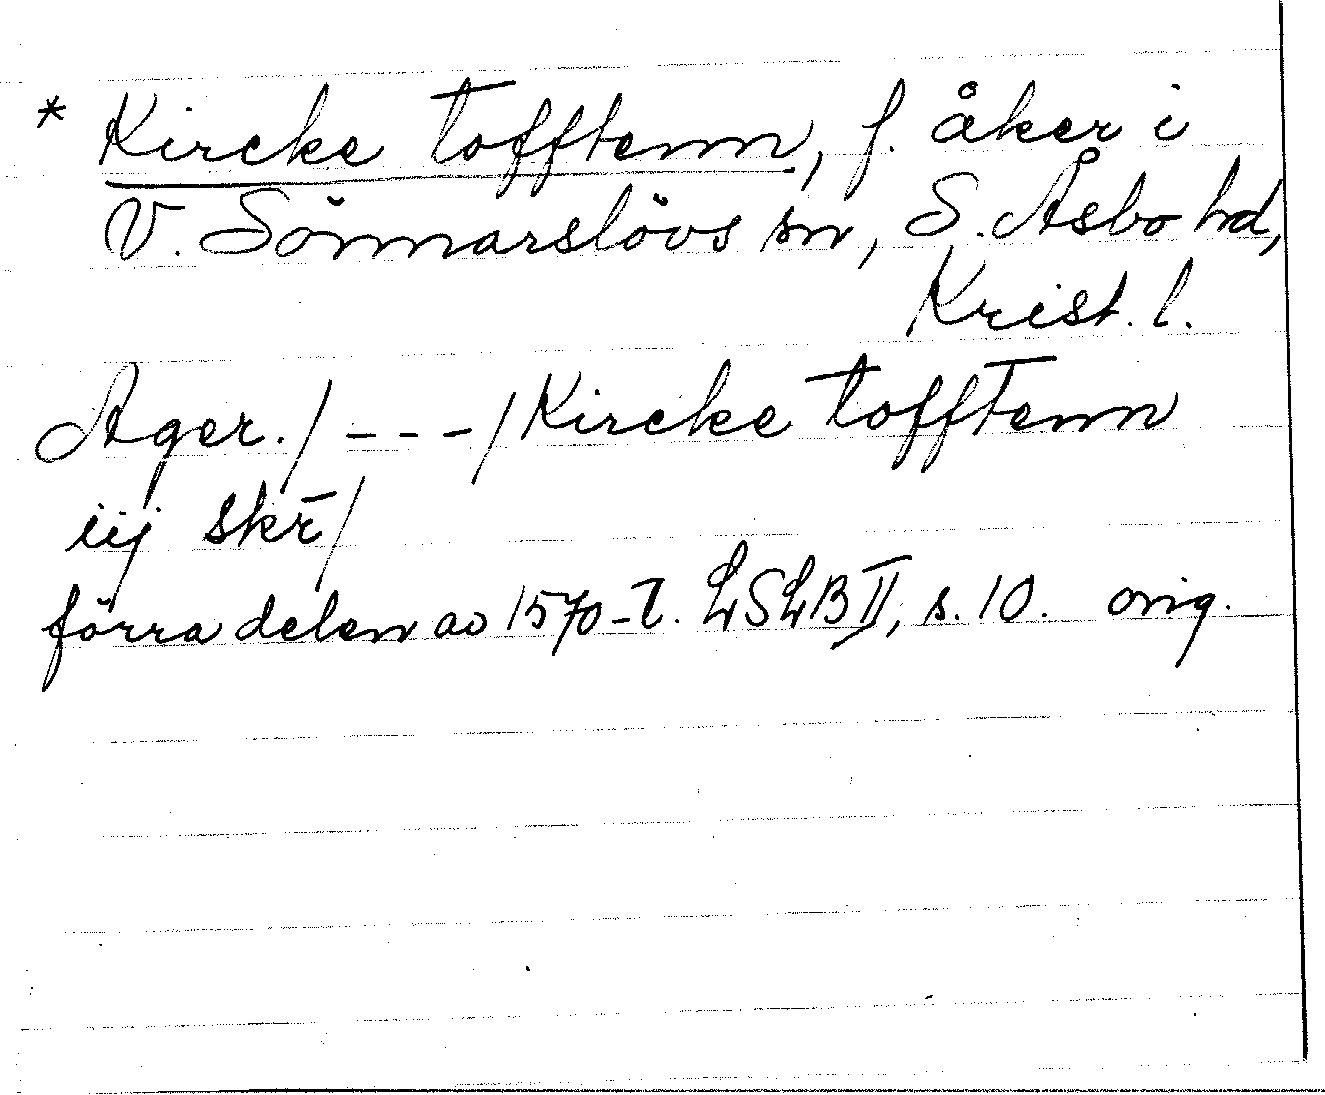 * Kircke tofftenn, f. åker i
V. Sönnarslövs sn, S. Åsbo hd,
Krist. l.
Ager./ - - - / Kircke tofftenn
iij skr̄/
förra delen av 1570-t. LSLB II, s. 10. orig.